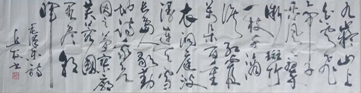 九嶷山上
白云飞
帝子乘
风下翠微
斑竹
一枝千滴
泪红霞
万朵百重
衣洞庭波
涌连天雪
长岛人歌动
地诗我欲
因之梦寥廓
芙蓉国
里尽朝
晖
毛泽东诗